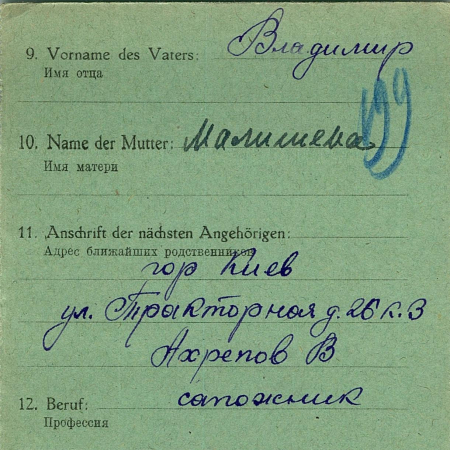 9. Vorname des Vaters: Владимир
Имя отца
10. Name der Mutter: Малишева
Имя матери
11. Anschrift der nächsten Angehörigen:
Адрес ближайших родственников
гор Киев
ул. Тракторная д. 26 к. 3
Ахрепов В
12. Beruf: сапожник
Профессия